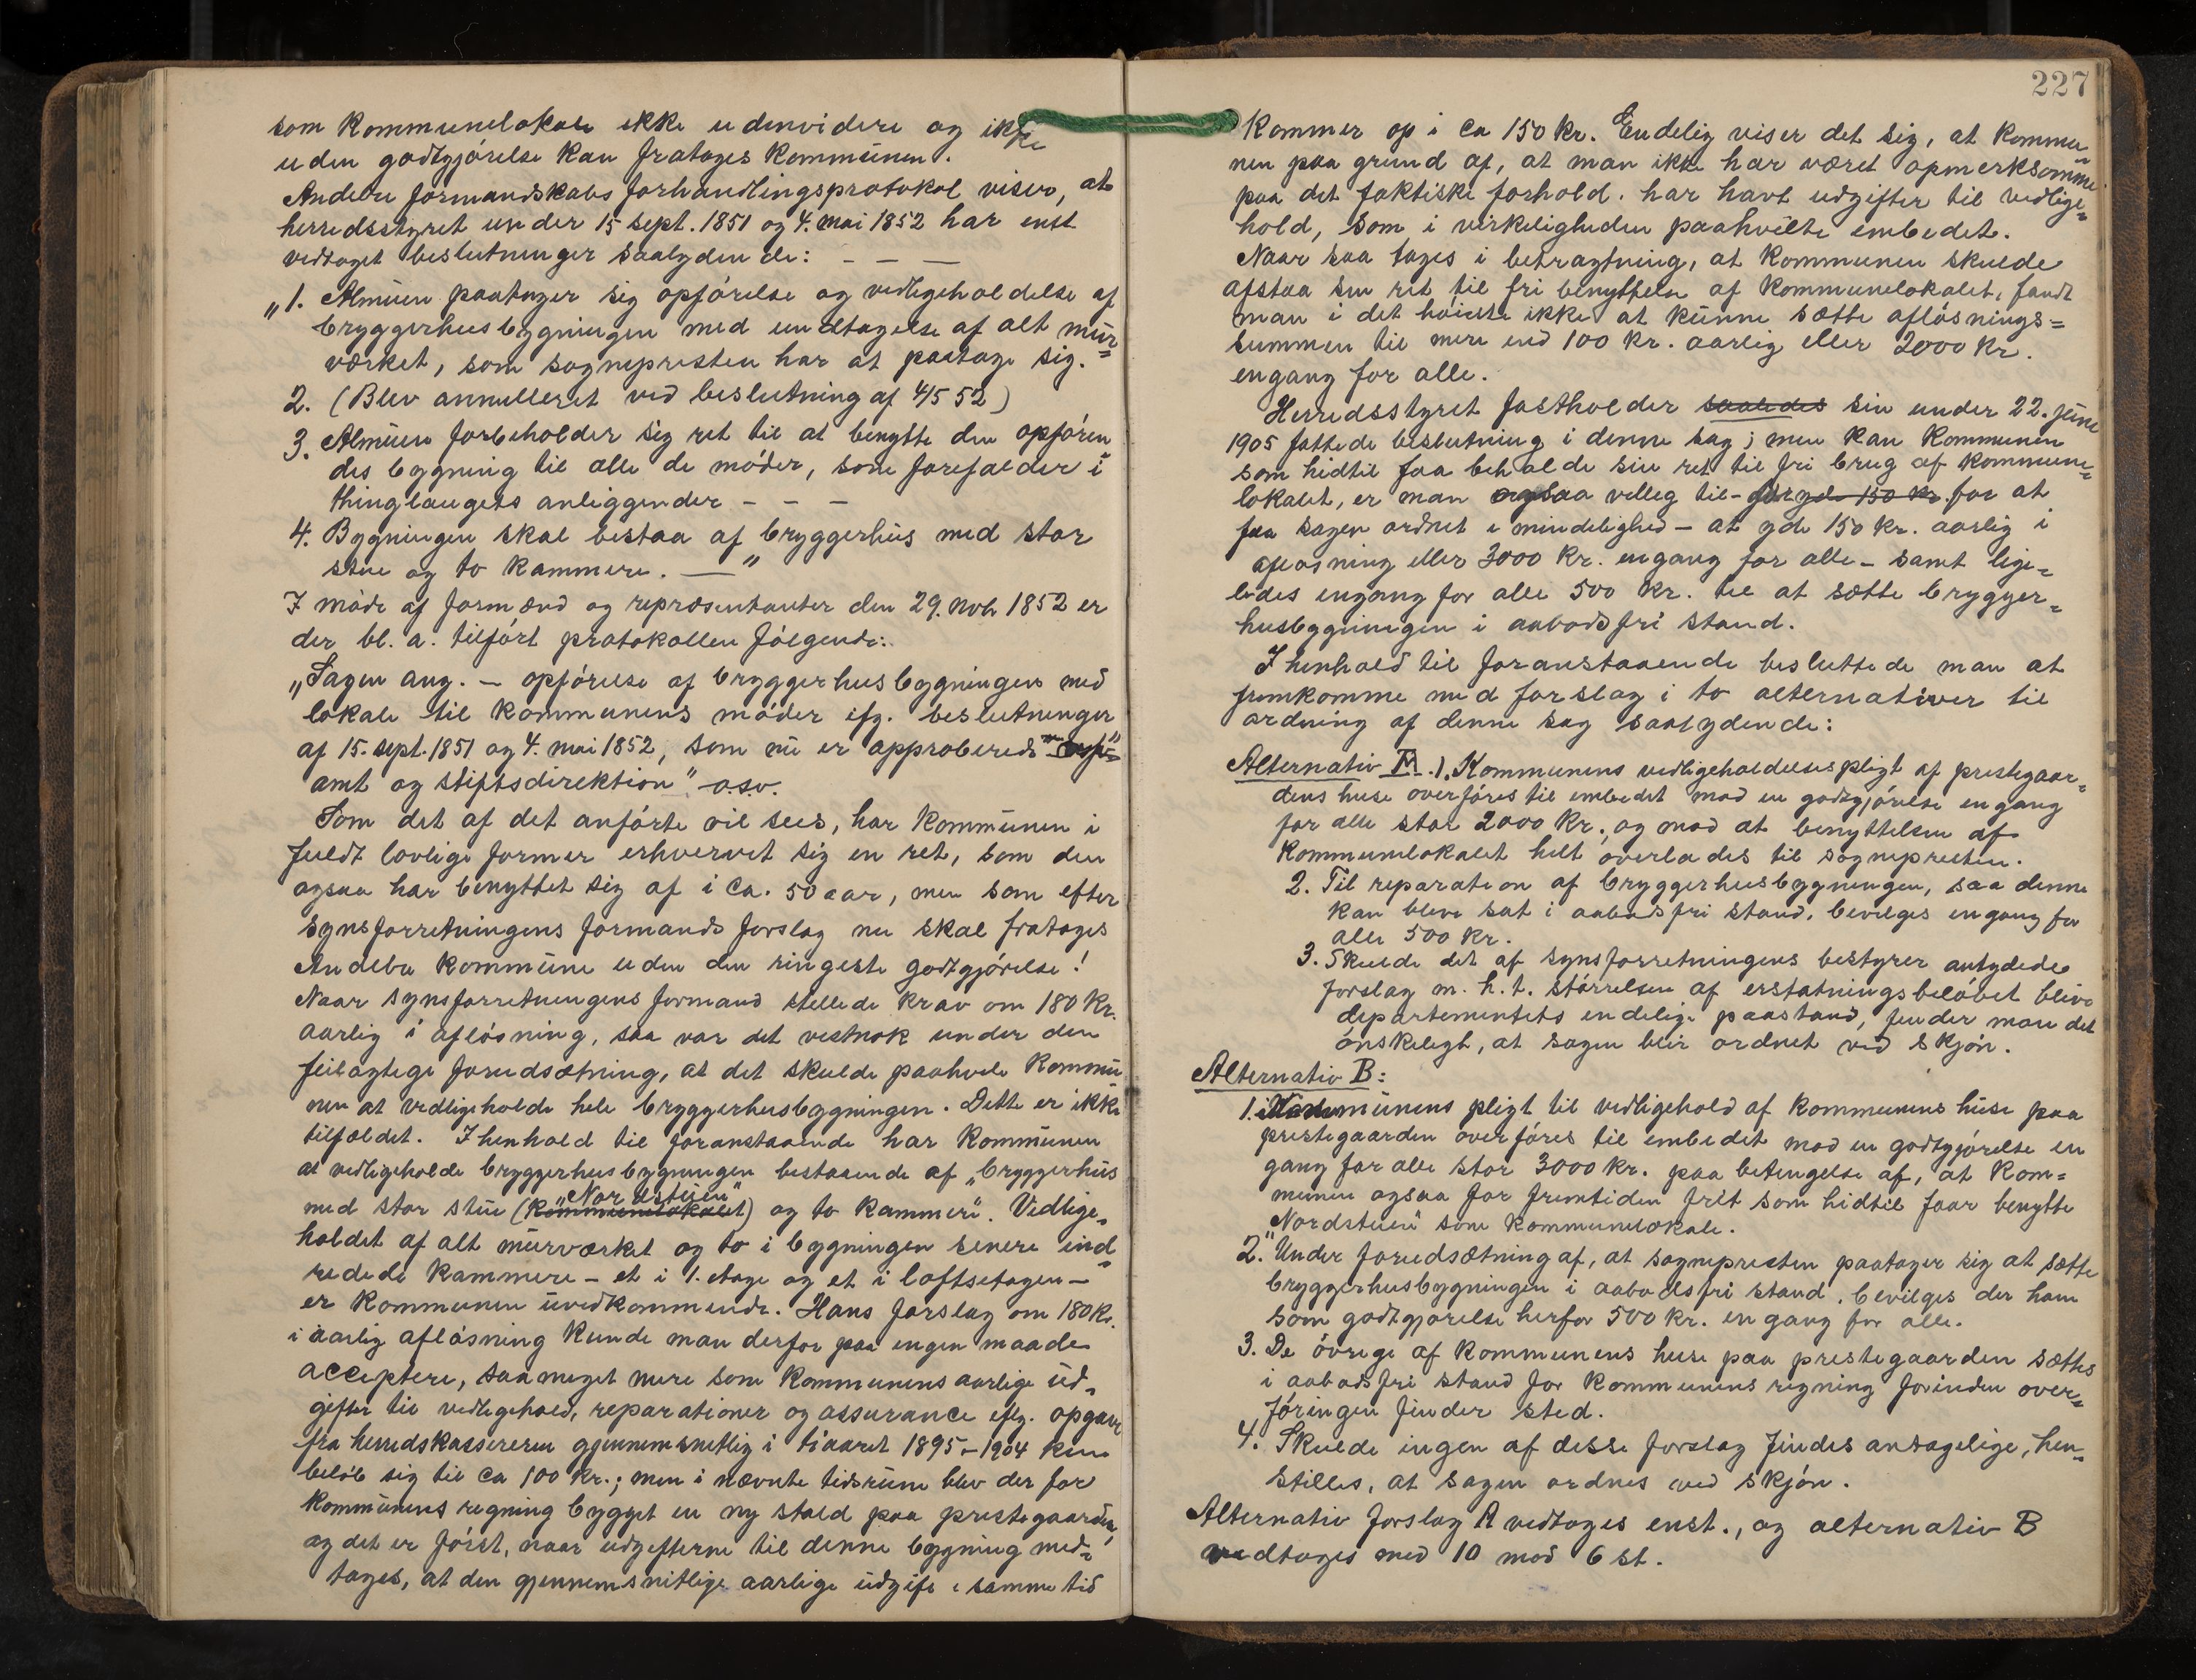 som kommunelokale ikke udenvidere og ikke
uden godtgjörelse kan fratages kommunen.
Andebu formandskabs forhandlingsprotokol viser, at
herredsstyret under 15 sept. 1851 og 4. mai 1852 har enst
vedtaget beslutninger saalydende: – – —
„1. Almuen paatager sig opförelse og vedligeholdelse af
bryggerhusbygningen med undtagelse af alt mur=
værket, som sognepresten har at paatage sig.
2. (Blev annulleret ved beslutning af 4/5 52)
3. Almuen forbeholder sig ret til at benytte den opfören
des bygning til alle de möder, som forefalder i
thinglaugets anliggender – – –
4. Bygningen skal bestaa af bryggerhus med stor
stue og to kammere. —"
I möde af formænd og repræsentanter den 29. nob. 1852 er
der bl. a. tilfört protokollen fölgende:
„Sagen ang. – opförelse af bryggerhusbygningen med
lokale til kommunens möder efg. beslutninger
af 15. sept. 1851 og 4. mai 1852, som nu er approberede
amt og stiftsdirektion" o.s.v.
Som det af det anförte vil sees, har kommunen i
fuldt lovlige former erhvervet sig en ret, som den
ogsaa har benyttet sig af i ca. 50 aar, men som efter
synsforretningens formands forslag nu skal fratages
Andebu kommune uden den ringeste godtgjörelse!
Naar synsforretningens formand stillede krav om 180 kr.
aarlig i aflösning, saa var det vistnok under den
feilagtige forudsætning, at det skulde paahvile kommu
nen at vedligeholde hele bryggerhusbygningen. Dette er ikke
tilfældet. I henhold til foranstaaende har kommunen
at vedligeholde bryggerhusbygningen bestaaende af „bryggerhus
„Nordstuen"
med stor stue (kommunelokalet) og to kammere". Vedlige=
holdet af alt murværket og to i bygningen senere ind=
redede kammere – et i 1. etage og et i loftsetagen –
er kommunen uvedkommende. Hans forslag om 180 kr.
i aarlig aflösning kunde man derfor paa ingen maade
acceptere, saa meget mere som kommunens aarlige ud=
gifter til vedligehold, reparationer og assurance eflg. opgave
fra herredskassereren gjennemsnitlig i tiaaret 1895–1904 kun
belöb sig til ca 100 kr.; men i nævnte tidsrum blev der for
kommunens regning bygget en ny stald paa prestegaarden,
og det er först, naar udgifterne til denne bygning med=
tages, at den gjennemsnitlige aarlige udgift i samme tid
227
kommer op i ca 150 kr. Endelig viser det sig, at kommu=
nen paa grund af, at man ikke har været opmerksomme
paa det faktiske forhold. har havt udgifter til vedlige=
hold, som i virkeligheden paahvilte embedet.
Naar saa tages i betragtning, at kommunen skulde
afstaa sin ret til fri benyttelse af kommunelokalet, fandt
man i det höieste ikke at kunne sætte aflösnings=
summen til mere end 100 kr. aarlig eller 2000 kr.
engang for alle.
Herredsstyret fastholder saaledes sin under 22. juni
1905 fattede beslutning i denne sag; men kan kommunen
som hidtil faa beholde sin ret til fri brug af kommune=
lokalet, er man ogsaa villig til – for at
faa sagen ordnet i mindelighed – at yde 150 kr. aarlig i
aflösning eller 3000 kr. engang for alle – samt lige=
ledes engang for alle 500 kr. til at sætte brygger=
husbygningen i aabodsfri stand.
I henhold til foranstaaende besluttede man at
fremkomme med forslag i to alternativer til
ordning af denne sag saalydende:
Alternativ A. 1. Kommunens vedligeholdelsespligt af prestegaar=
dens huse overföres til embedet mod en godtgjörelse engang
for alle stor 2000 kr., og mod at benyttelsen af
kommunelokalet helt overlades til sognepresten.
2. Til reparation af bryggerhusbygningen, saa denne
kan blive sat i aabodsfri stand, bevilges engang for
alle 500 kr.
3. Skulde det af synsforretningens bestyrer antydede
forslag m. h. t. störrelsen af erstatningsbelöbet blive
departementets endelige paastand, finder man det
önskeligt, at sagen blir ordnet ved skjön.
Alternativ B:
1. Kommunens pligt til vedligehold af kommunens huse paa
prestegaarden overföres til embedet mod en godtgjörelse en
gang for alle stor 3000 kr. paa betingelse af, at kom=
munen ogsaa for fremtiden frit som hidtil faar benytte
„Nordstuen" som kommunelokale.
2. Under forudsætning af, at sognepresten paatager sig at sætte
bryggerhusbygningen i aabodsfri stand, bevilges der ham
som godtgjörelse herfor 500 kr. en gang for alle.
3. De övrige af kommunens huse paa prestegaarden sættes
i aabodsfri stand for kommunens regning forinden over=
föringen finder sted.
4. Skulde ingen af disse forslag findes antagelige, hen=
stilles, at sagen ordnes ved skjön.
Alternativ forslag A vedtages enst., og alternativ B
vedtages med 10 mod 6 st.